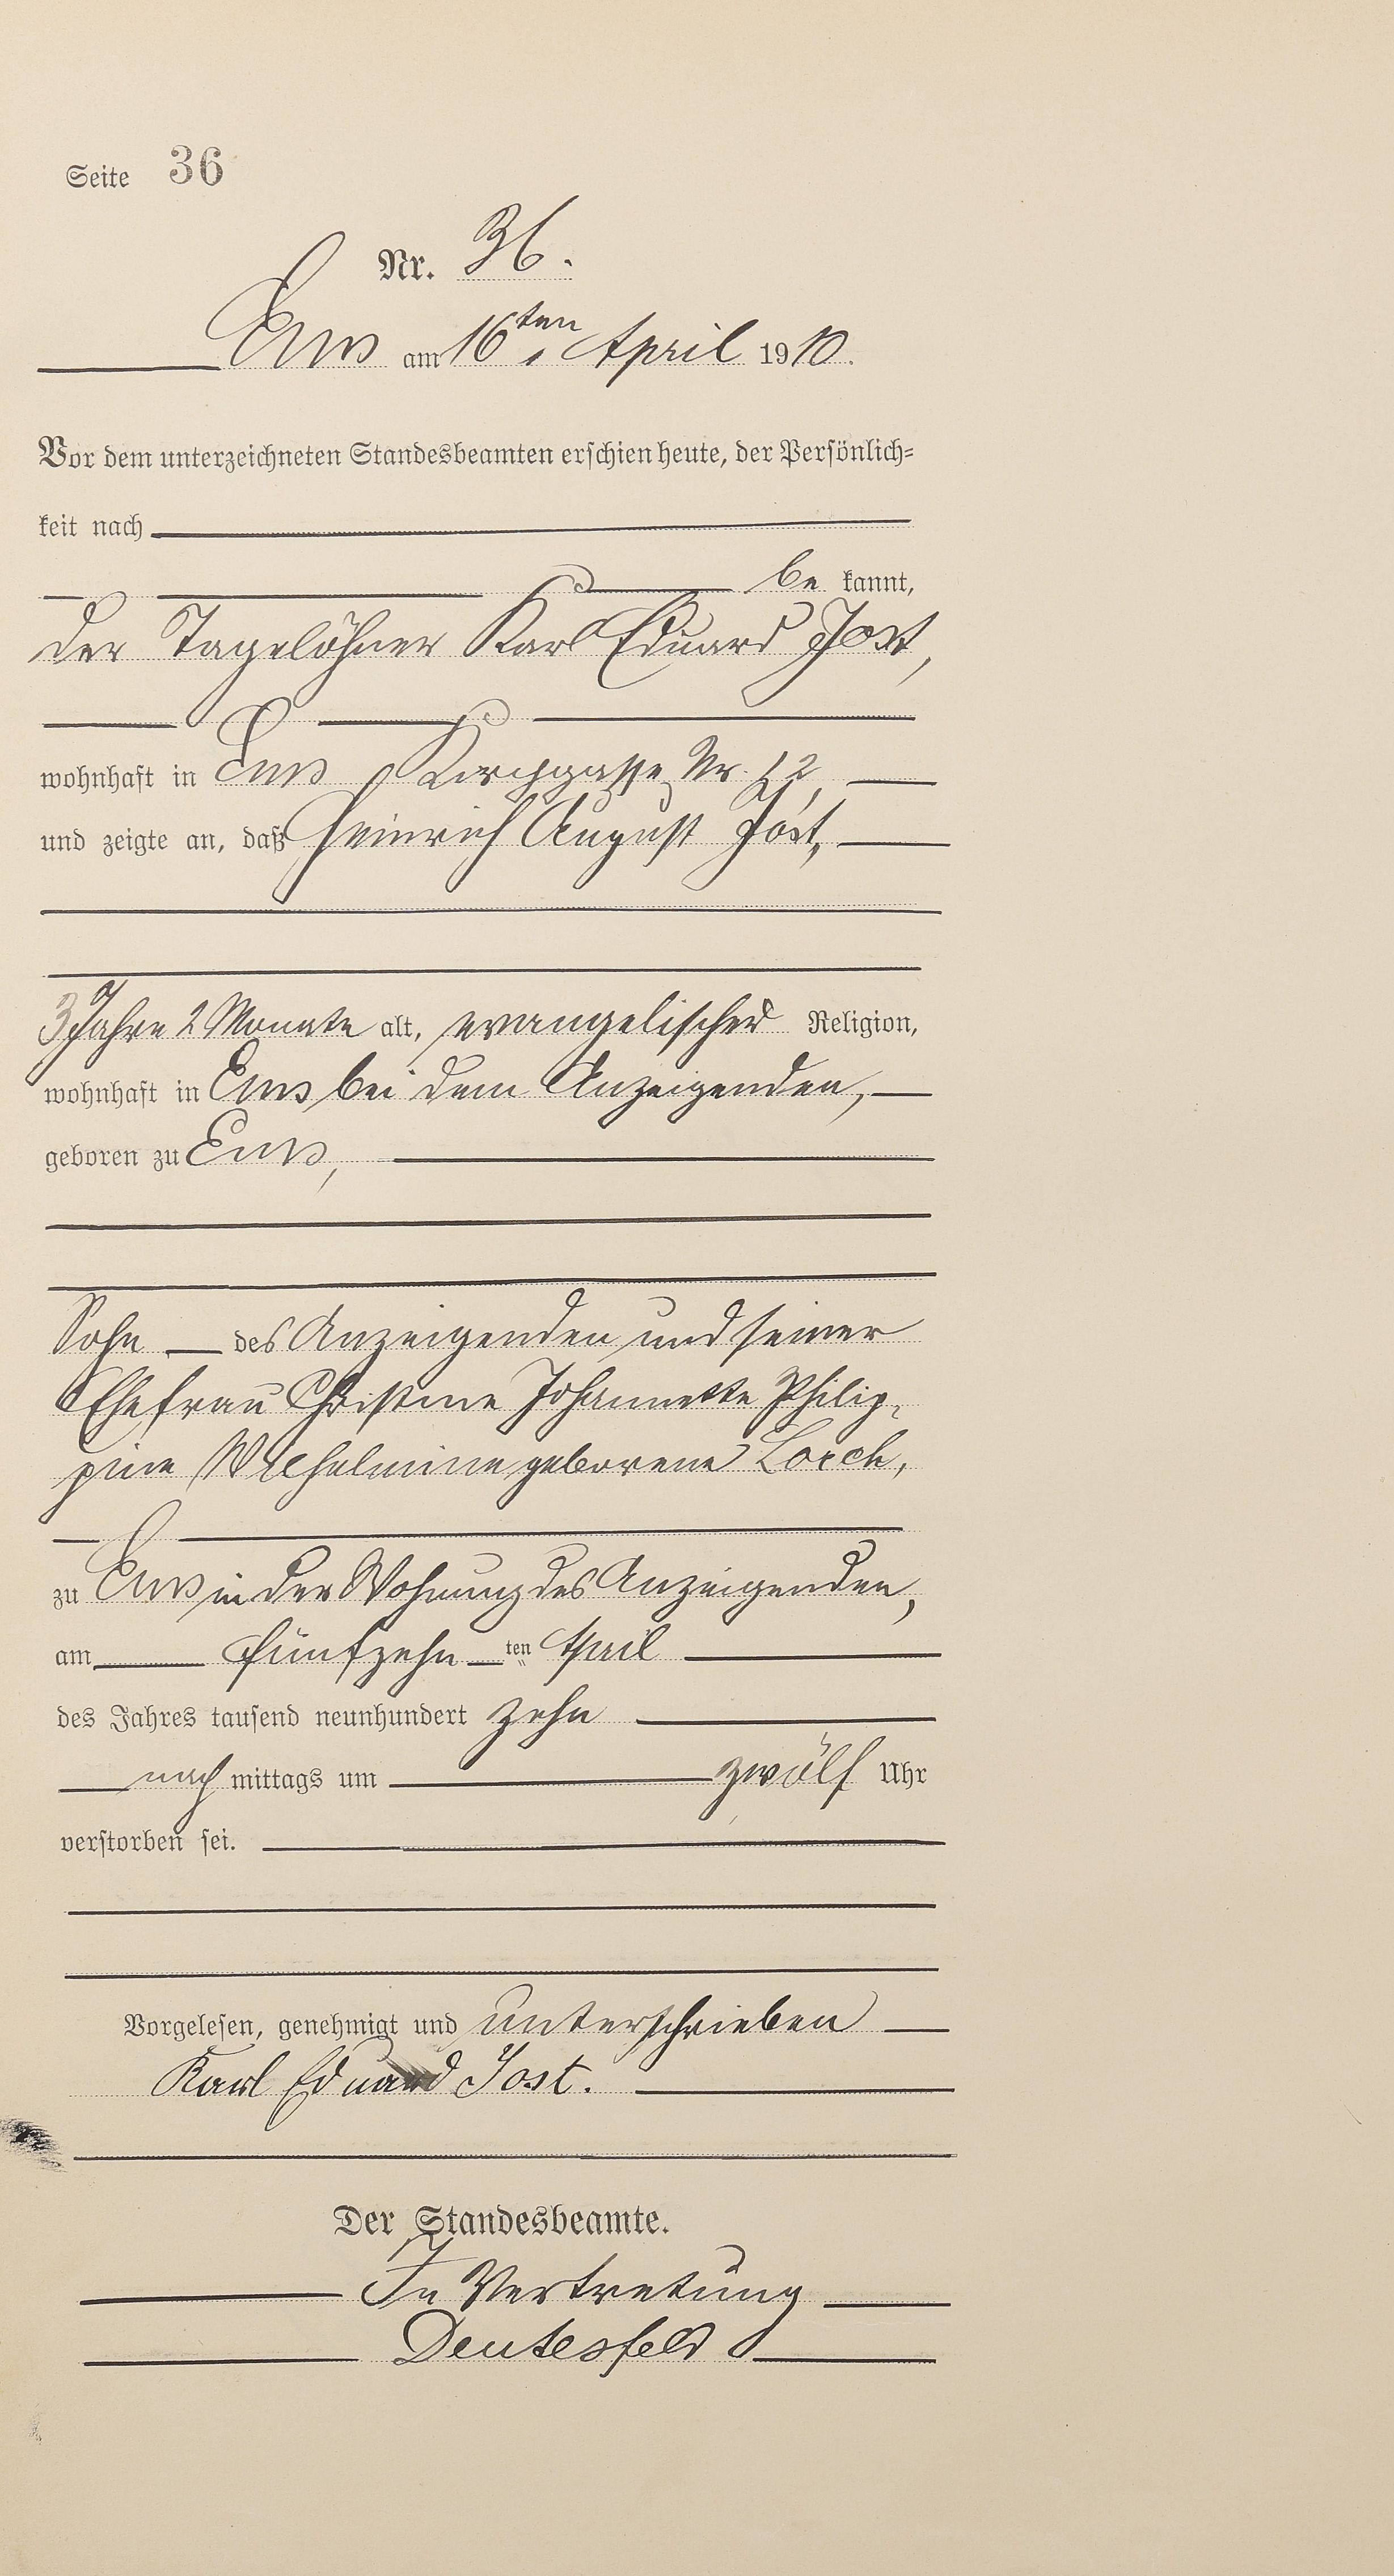 Seite 36
Nr. 36.
Ems am 16ten April 1910.
Vor dem unterzeichneten Standesbeamten erschien heute, der Persönlich-
keit nach
be kannt,
der Tagelöhner Karl Eduard Jost,
wohnhaft in Ems, Kirchgasse Nr. 12,
und zeigte an, daß Heinrich August Jost,
3 Jahre 2 Monate alt, evangelischer Religion,
wohnhaft in Ems bei dem Anzeigenden,
geboren zu Ems,
Sohn des Anzeigenden und seiner
Ehefrau Christine Johannette Philip-
pine Wilhelmine geborene Lorch,
zu Ems in der Wohnung des Anzeigenden,
am fünfzehn ten April
des Jahres tausend neunhundert zehn
nach mittags um zwölf Uhr
verstorben sei.
Vorgelesen, genehmigt und unterschrieben
Karl Eduard Jost.
Der Standesbeamte.
In Vertretung
Deutesfeld